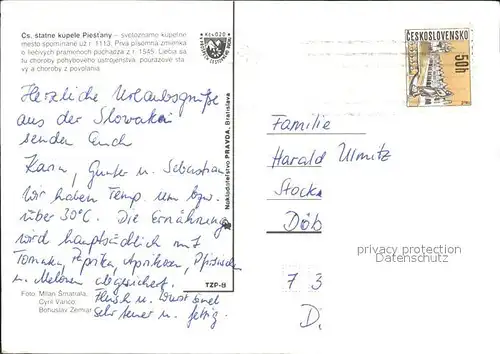 Čs. štátne kúpele Piešťany – svetoznáme kúpeľné
mesto spomínané už r. 1113. Prvá písomná zmienka
o liečivých prameňoch pochádza z r. 1545. Liečia sa
tu choroby pohybového ústrojenstva, poúrazové sta-
vy a choroby z povolania.
Herzliche Urlaubsgrüße
aus der Slowakei
senden Euch
Karin, Gunter u. Sebastian
Wir haben Temp. um bzw.
über 30°C. Die Ernährung
wird hauptsächlich mit
Tomaten, Paprika, Aprikosen, Pfirsichen
u. Melonen abgesichert.
Fleisch u. Wurst sind
sehr teuer u. fettig.
Foto: Milan Šmatrala,
Cyril Vanco,
Bohuslav Zemjar
Nakladateľstvo PRAVDA, Bratislava
TZP-8
Kčs 0,20
ČESKOSLOVENSKO
50h
Familie
Harald Ulmitz
Stock
Döb
7 3
D.
privacy protection
Datenschutz